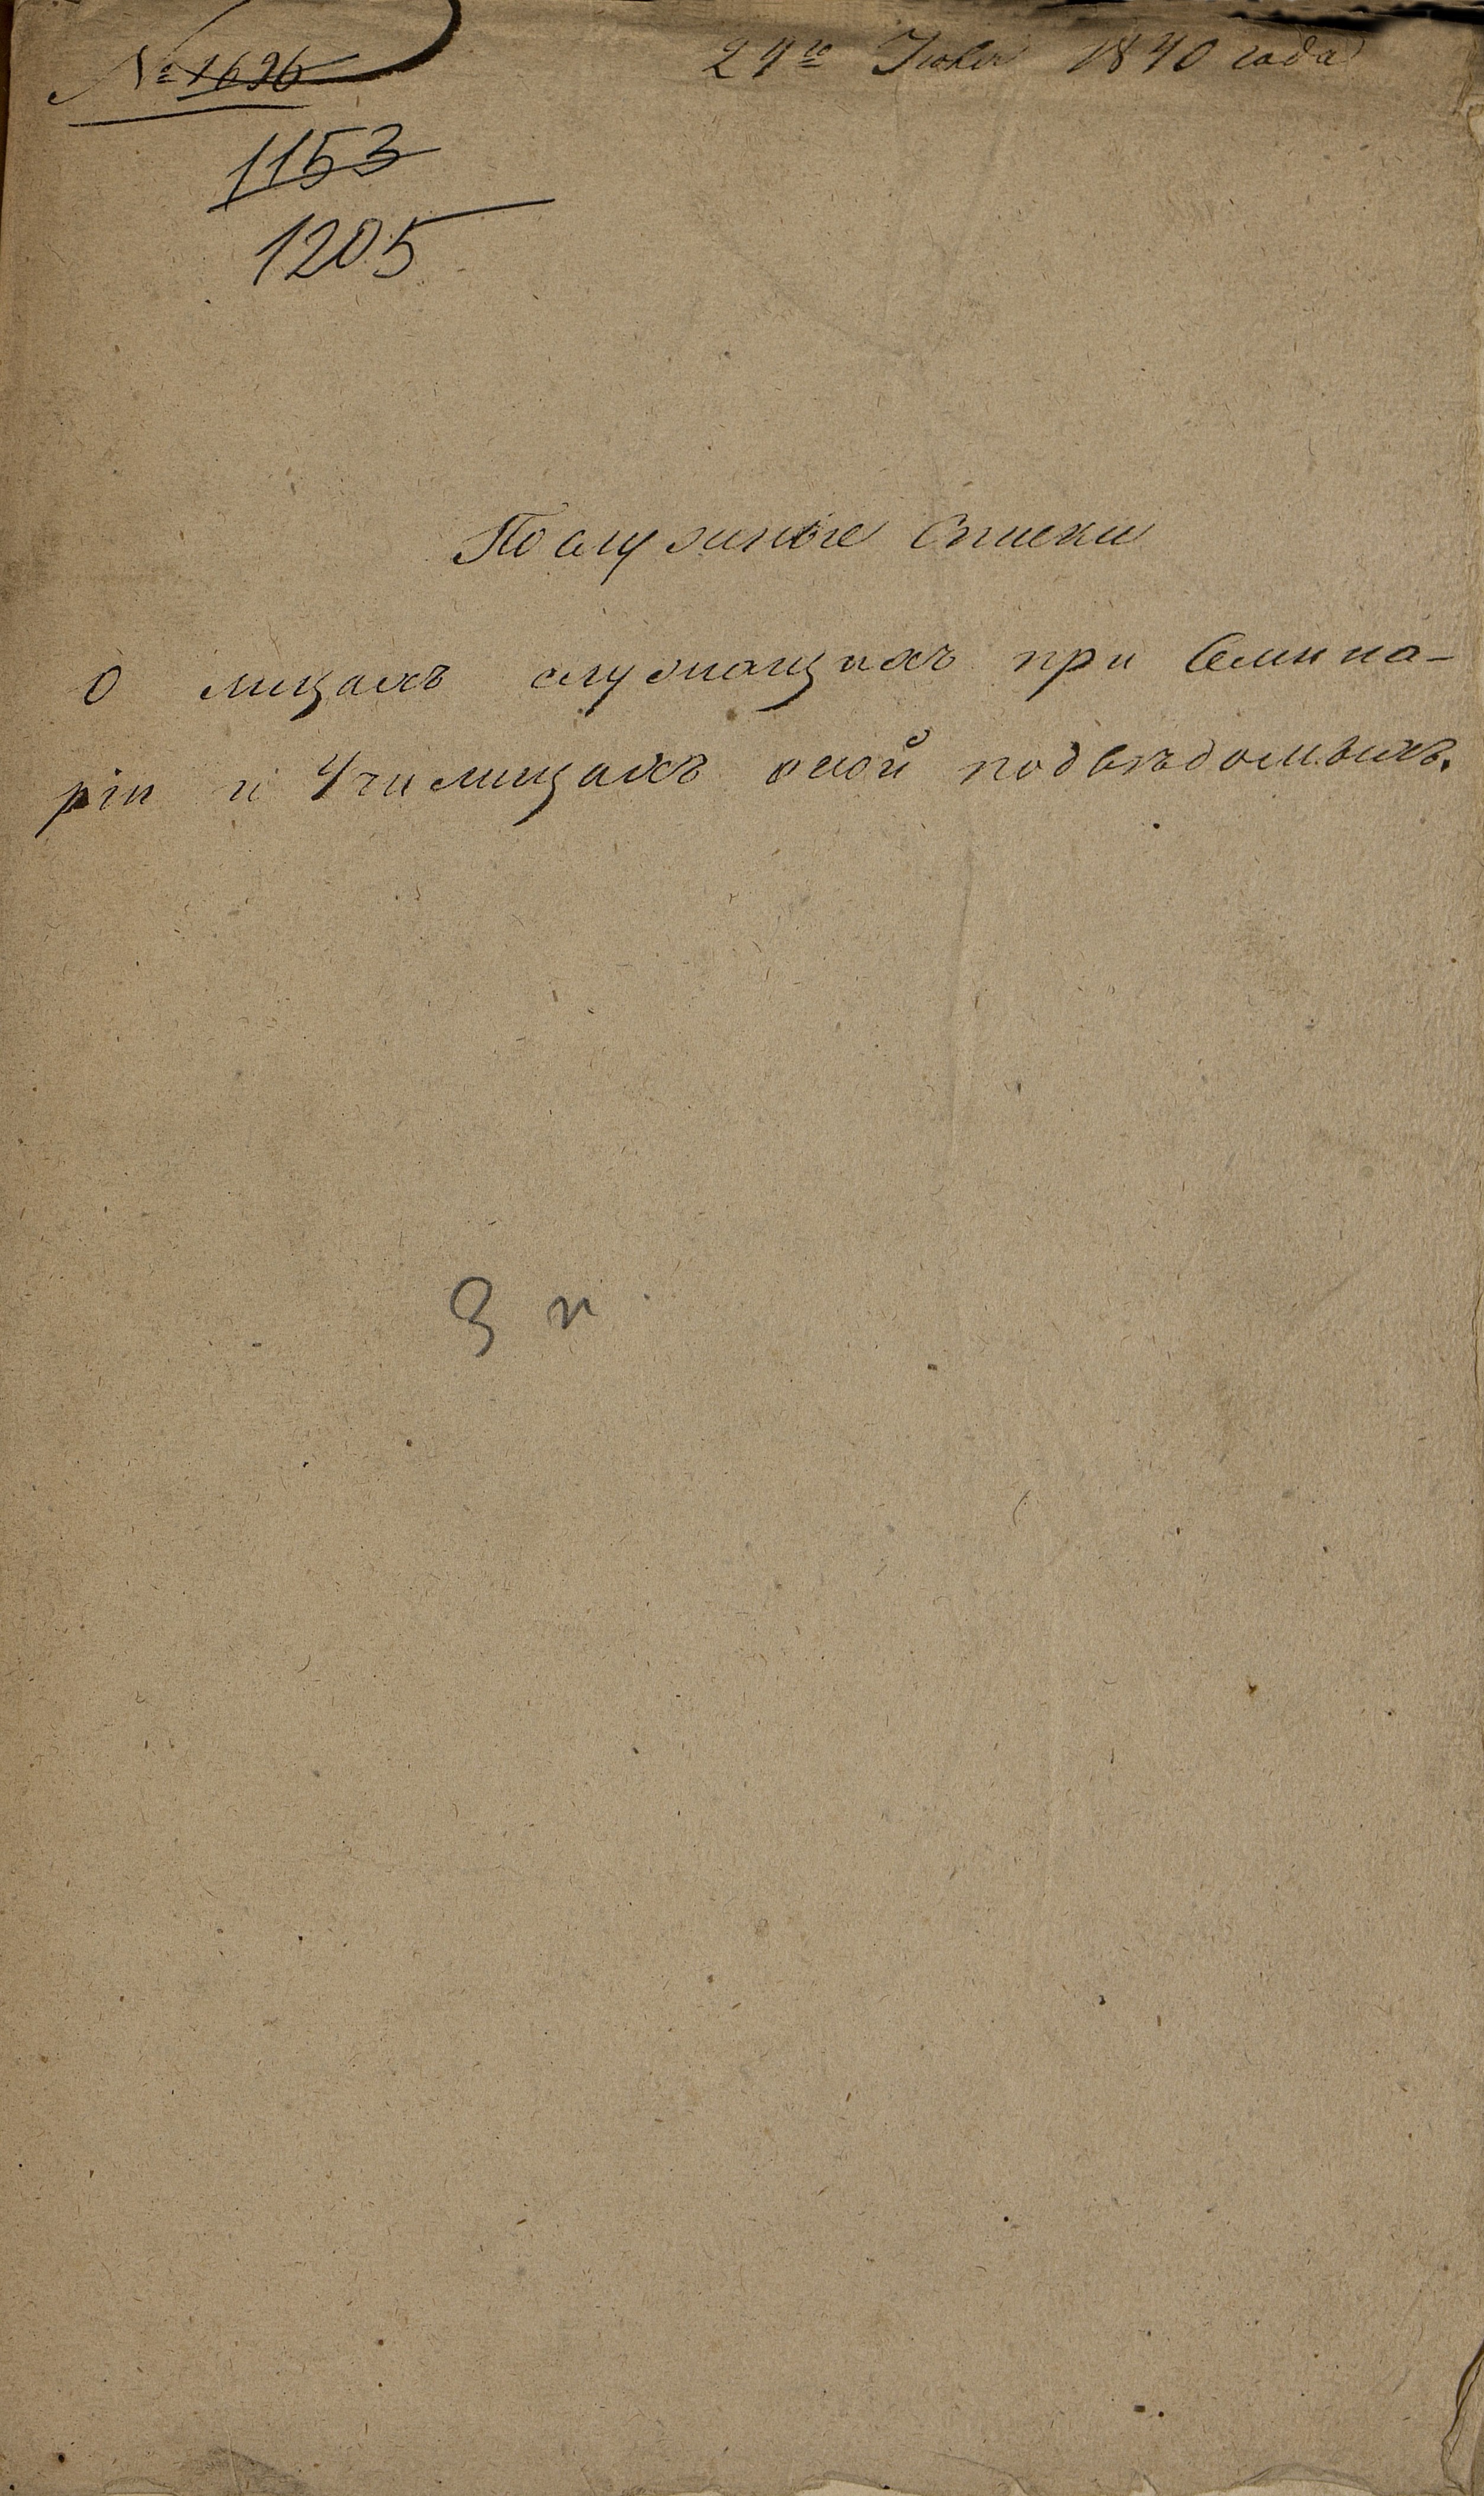 № 1696
24го Июля 1840 года
1153
1205
Послужные Списки
О лицахъ служащихъ при Семина-
ріи и Училищахъ оной подвѣдомыхъ.
3 п